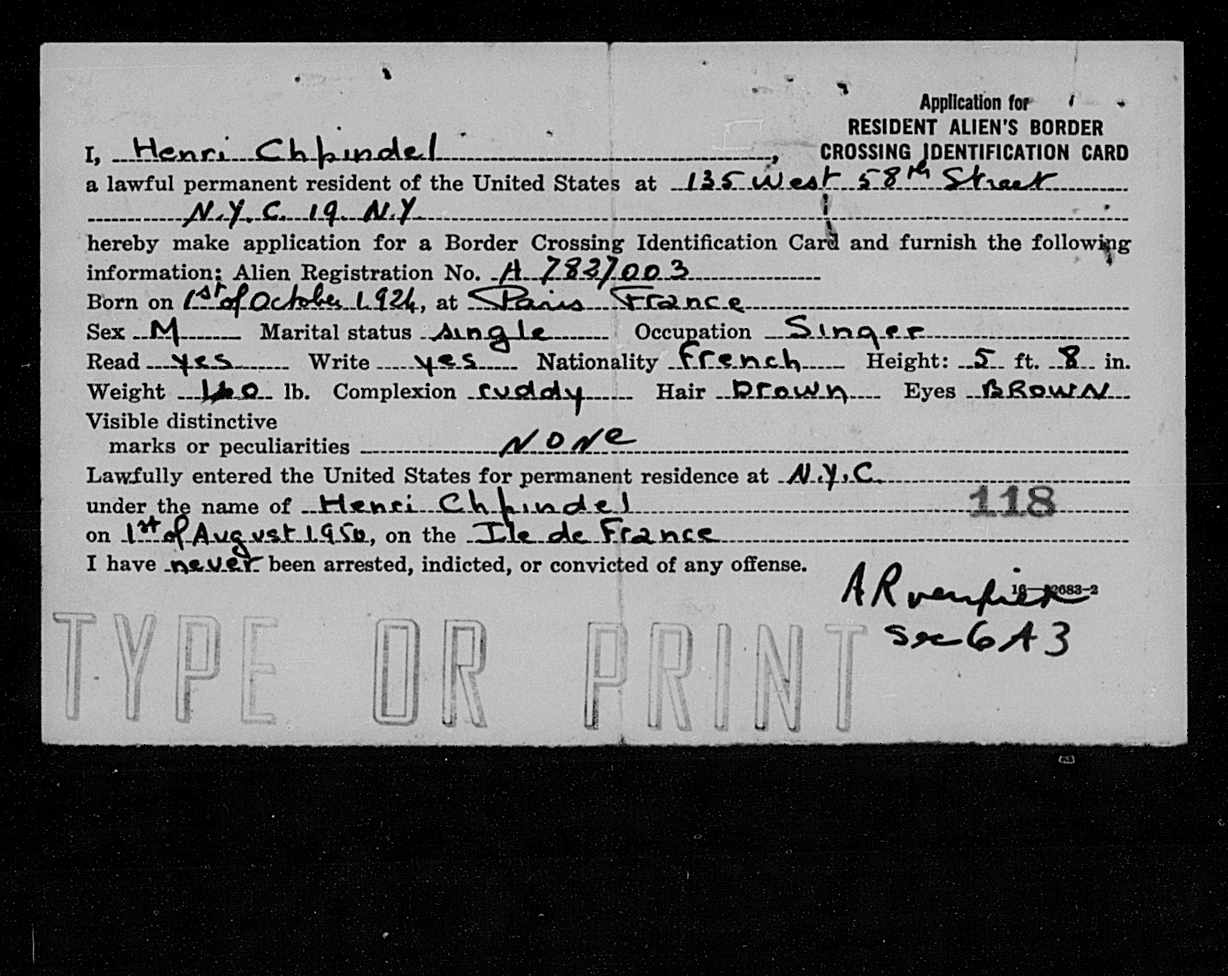 Application for
RESIDENT ALIEN'S BORDER
CROSSING IDENTIFICATION CARD
I, Henri Chpindel,
a lawful permanent resident of the United States at 135 West 58th Street
N.Y.C. 19 N.Y.
hereby make application for a Border Crossing Identification Card and furnish the following
information: Alien Registration No. A 7827003
Born on 1st of October 1924, at Paris France
Sex M Marital status single Occupation Singer
Read yes Write yes Nationality French Height: 5 ft. 8 in.
Weight 160 lb. Complexion ruddy Hair Brown Eyes BROWN
Visible distinctive
marks or peculiarities NONE
Lawfully entered the United States for permanent residence at N.Y.C.
under the name of Henri Chpindel
118
on 1st of August 1950, on the Ile de France
I have never been arrested, indicted, or convicted of any offense.
Sec 6 A 3
TYPE OR PRINT